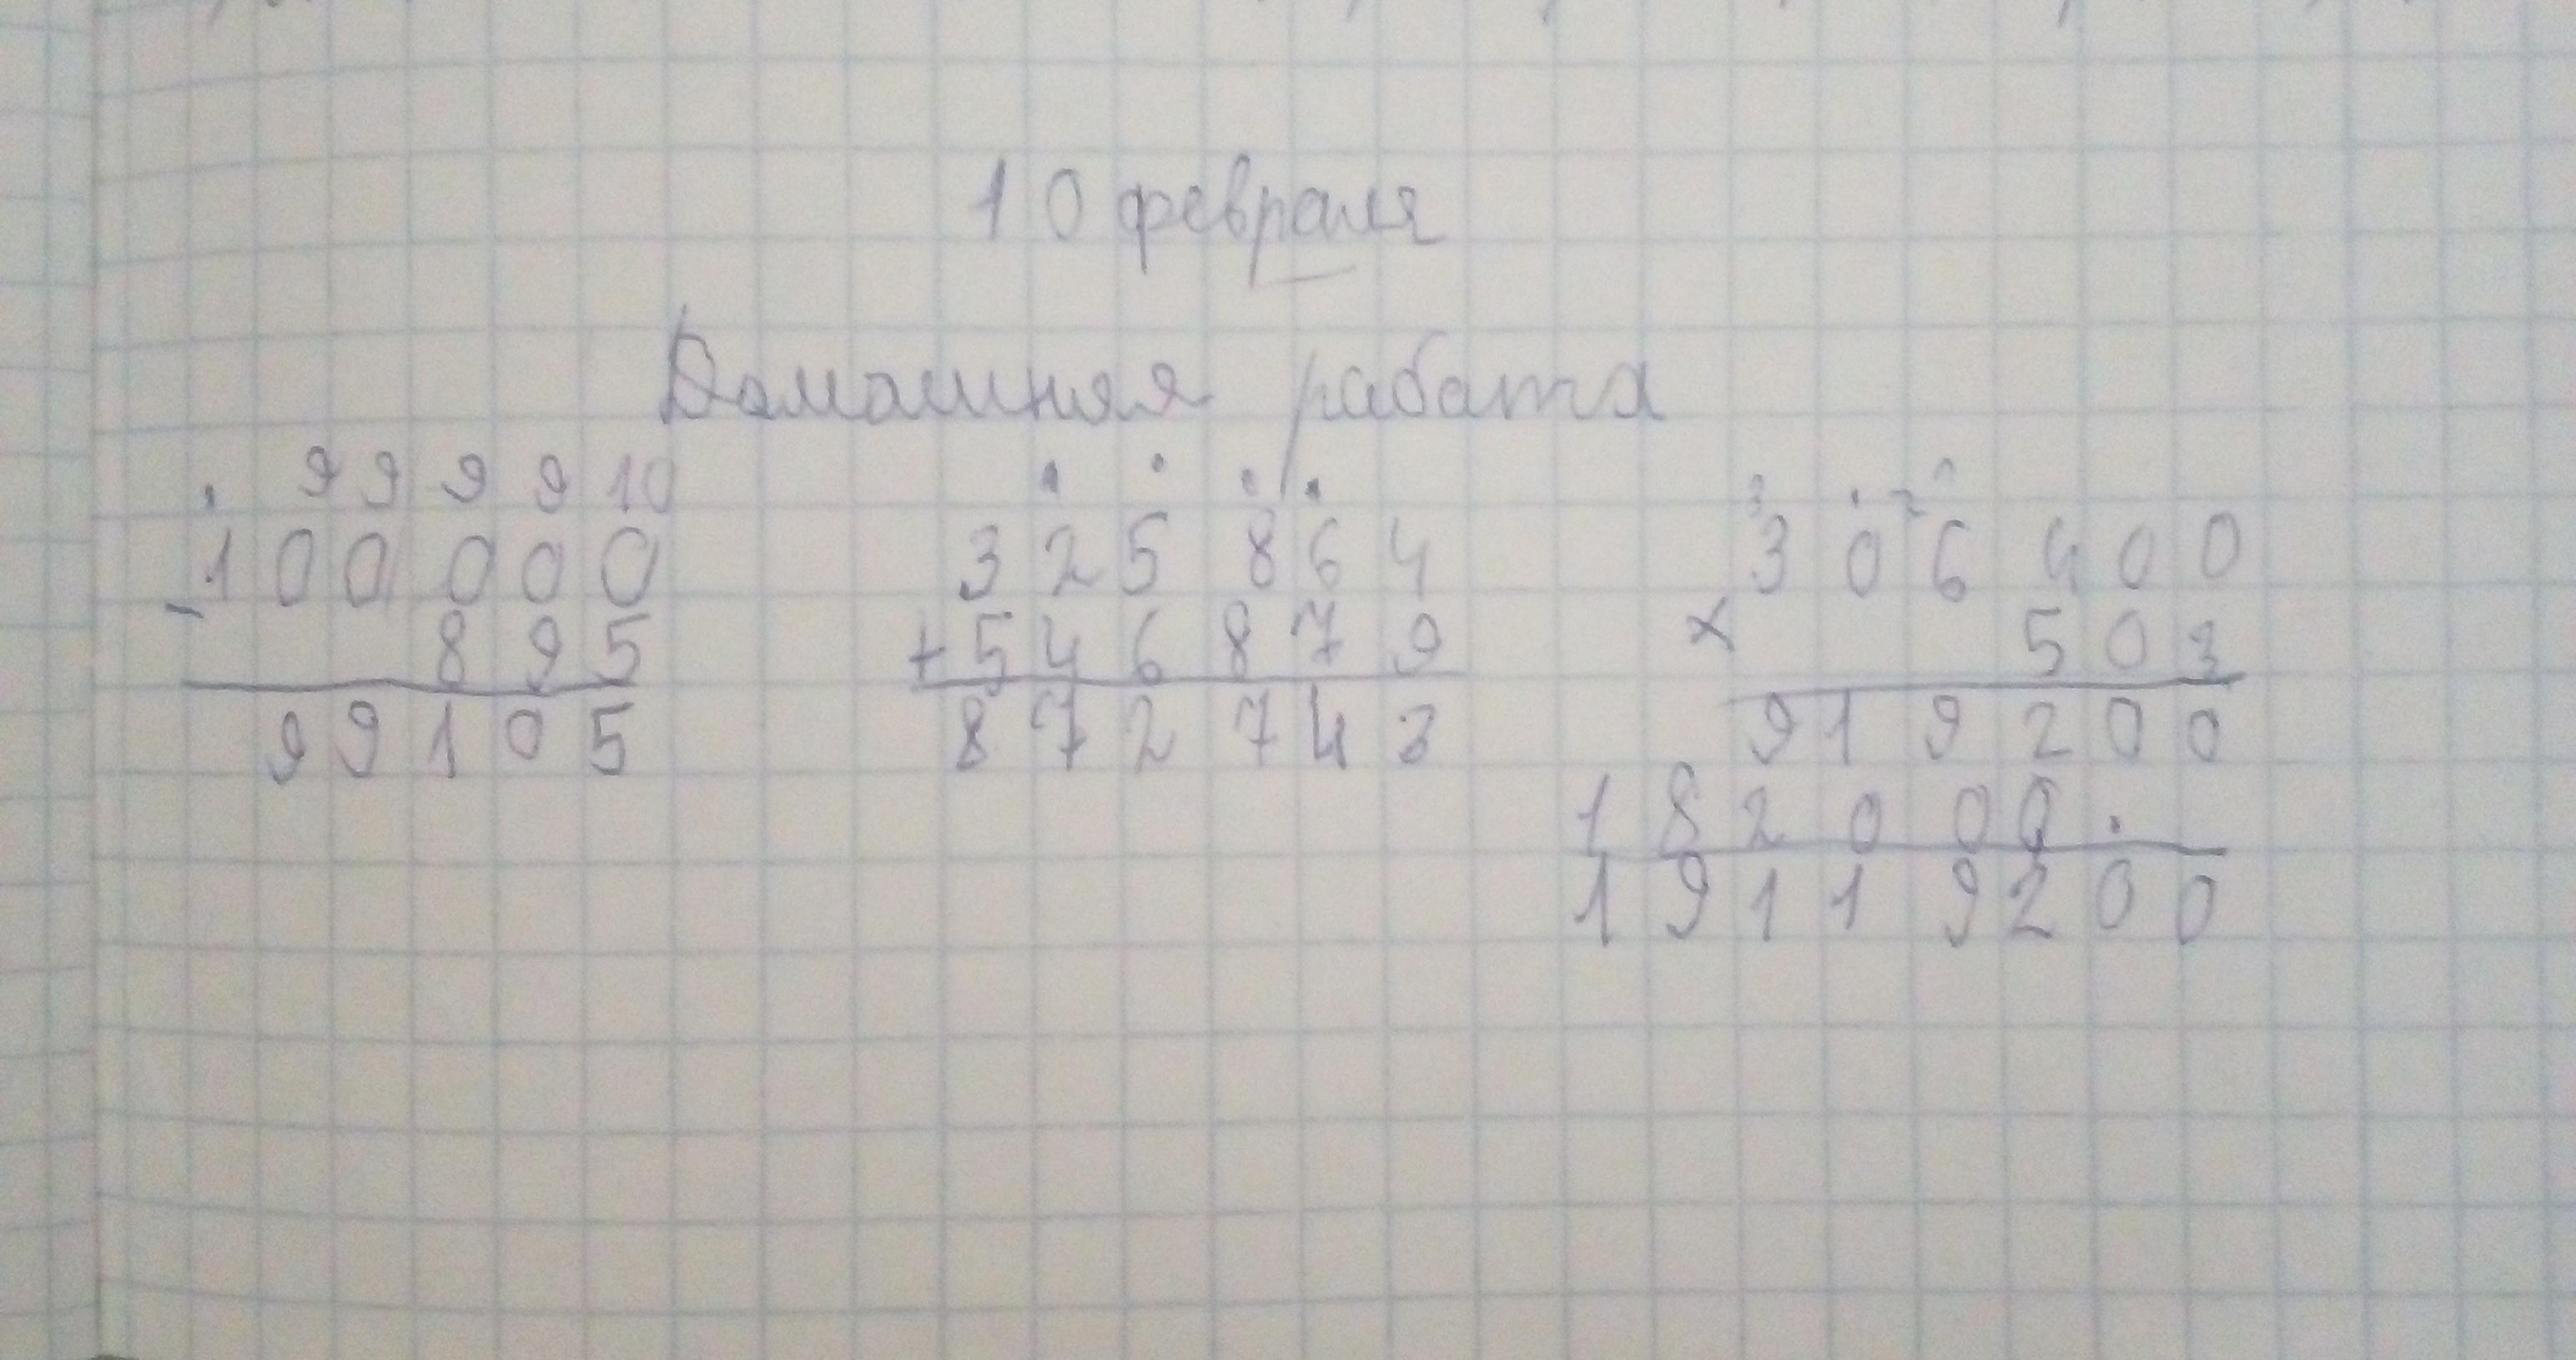 10 февраля
Домашняя работа
9 9 9 9 10
100 000
- 895
99 105
325 864
+ 546 879
872 743
3 2 1
306 400
× 503
919 200
1 820 00
19 119 200